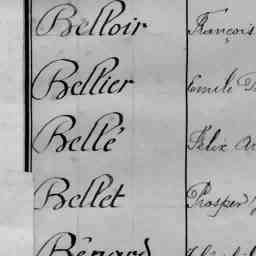 Belloir François
Bellier Emile
Bellé Félix
Bellet Prosper
Bénard